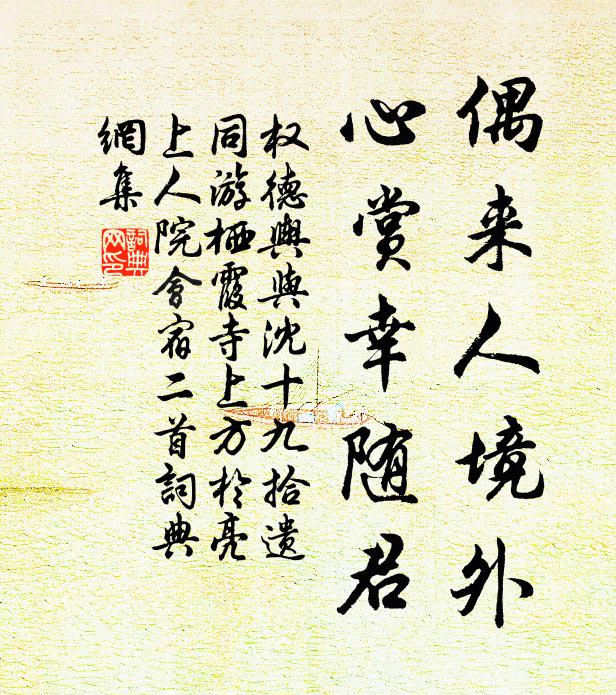 偶来人境外
心赏幸随君
权德舆与沈十九拾遗
同游栖霞寺上方於亮
上人院會宿二首詞典
網集
詞典
网印